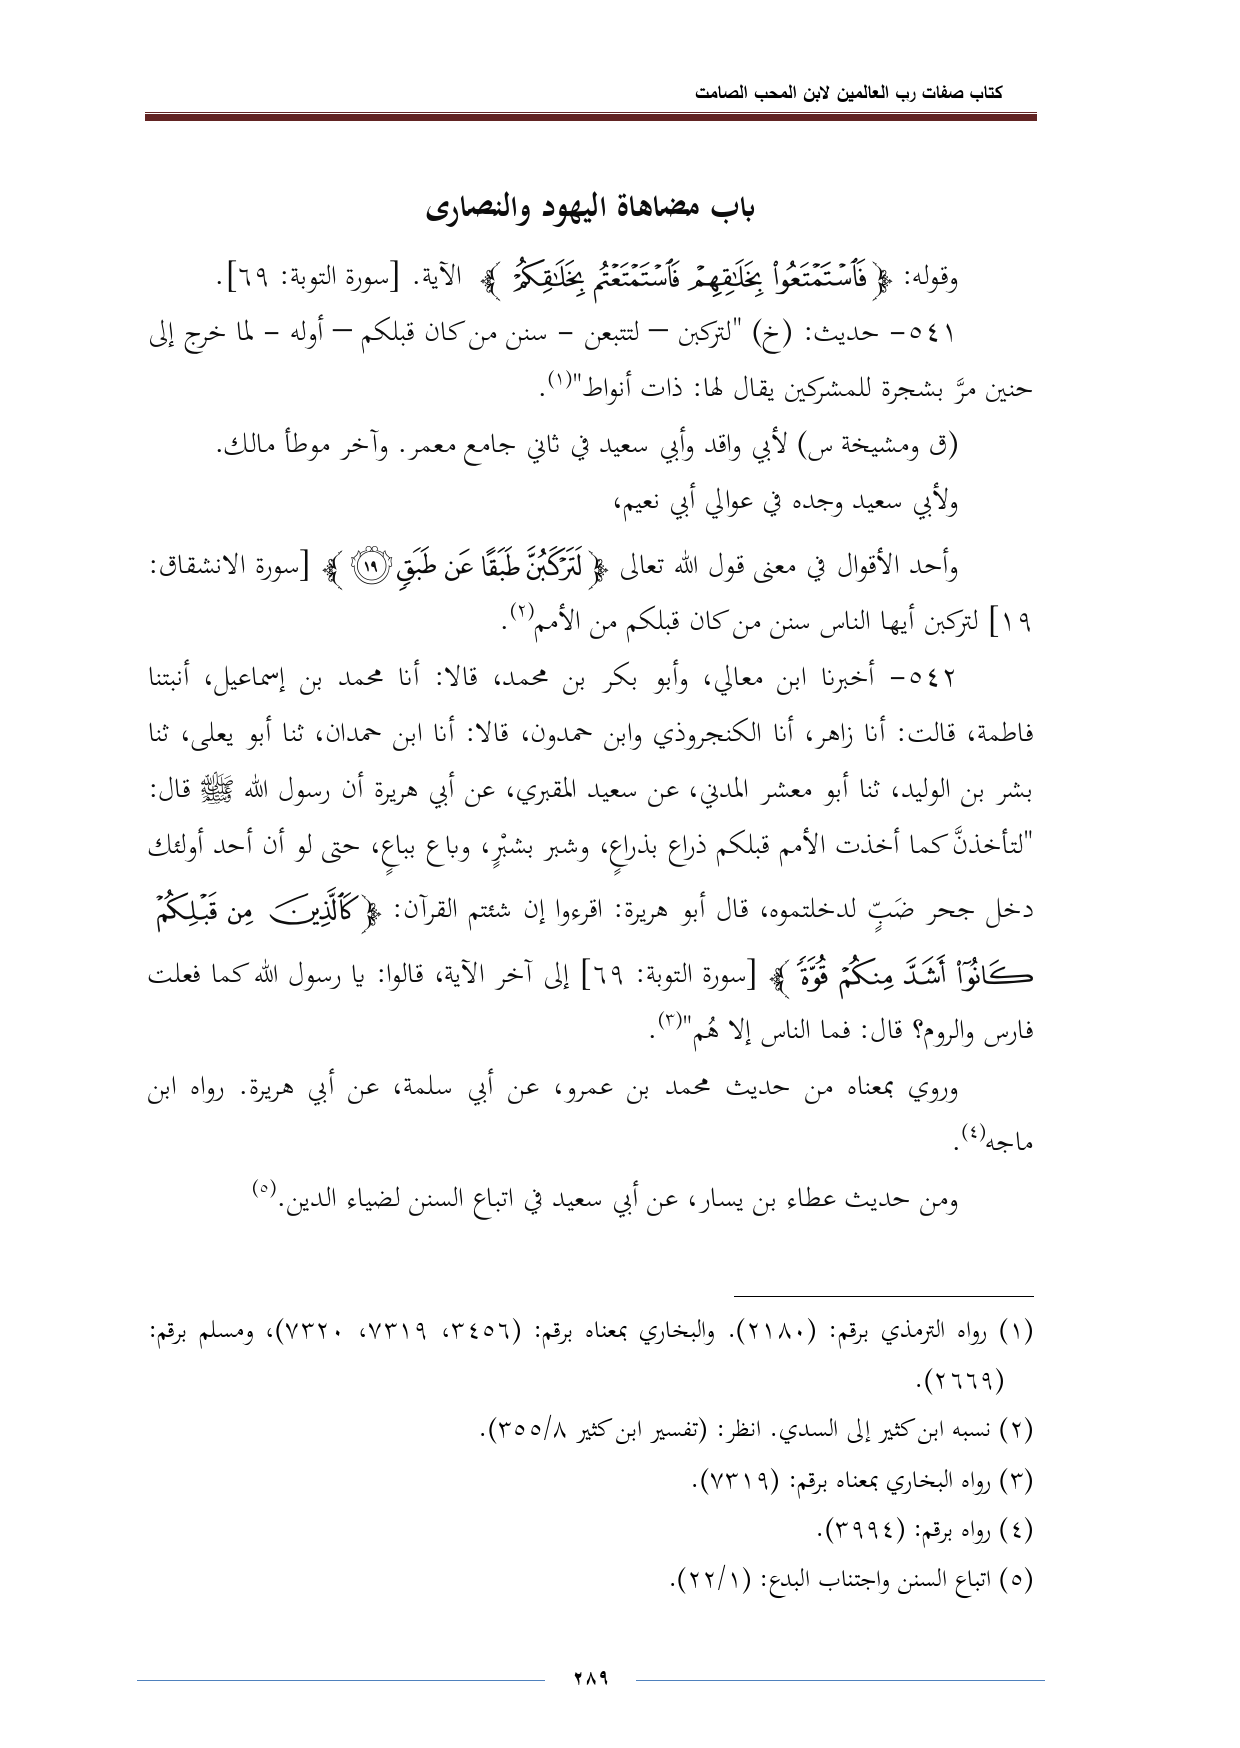 كتاب صفات رب العالمين لابن المحب الصامت
باب مضاهاة اليهود والنصارى
وقوله: ﴿ فَٱسۡتَمۡتَعُواْ بِخَلَٰقِهِمۡ فَٱسۡتَمۡتَعۡتُم بِخَلَٰقِكُمۡ ﴾ الآية. [سورة التوبة: ٦٩].
٥٤١- حديث: (خ) "لتركبن – لتتبعن – سنن من كان قبلكم – أوله – لما خرج إلى
حنين مرَّ بشجرة للمشركين يقال لها: ذات أنواط"(١).
(ق ومشيخة س) لأبي واقد وأبي سعيد في ثاني جامع معمر. وآخر موطأ مالك.
ولأبي سعيد وجده في عوالي أبي نعيم،
وأحد الأقوال في معنى قول الله تعالى ﴿ لَتَرۡكَبُنَّ طَبَقًا عَن طَبَقٖ ١٩ ﴾ [سورة الانشقاق:
١٩] لتركبن أيها الناس سنن من كان قبلكم من الأمم(٢).
٥٤٢- أخبرنا ابن معالي، وأبو بكر بن محمد، قالا: أنا محمد بن إسماعيل، أنبتنا
فاطمة، قالت: أنا زاهر، أنا الكنجروذي وابن حمدون، قالا: أنا ابن حمدان، ثنا أبو يعلى، ثنا
بشر بن الوليد، ثنا أبو معشر المدني، عن سعيد المقبري، عن أبي هريرة أن رسول الله ﷺ قال:
"لتأخذنَّ كما أخذت الأمم قبلكم ذراع بذراعٍ، وشبر بشبْرٍ، وباع بباعٍ، حتى لو أن أحد أولئك
دخل جحر ضَبٍّ لدخلتموه، قال أبو هريرة: اقرءوا إن شئتم القرآن: ﴿ كَٱلَّذِينَ مِن قَبۡلِكُمۡ
كَانُوٓاْ أَشَدَّ مِنكُمۡ قُوَّةٗ ﴾ [سورة التوبة: ٦٩] إلى آخر الآية، قالوا: يا رسول الله كما فعلت
فارس والروم؟ قال: فما الناس إلا هُم"(٣).
وروي بمعناه من حديث محمد بن عمرو، عن أبي سلمة، عن أبي هريرة. رواه ابن
ماجه(٤).
ومن حديث عطاء بن يسار، عن أبي سعيد في اتباع السنن لضياء الدين.(٥)
(١) رواه الترمذي برقم: (٢١٨٠). والبخاري بمعناه برقم: (٣٤٥٦، ٧٣١٩، ٧٣٢٠)، ومسلم برقم:
(٢٦٦٩).
(٢) نسبه ابن كثير إلى السدي. انظر: (تفسير ابن كثير ٣٥٥/٨).
(٣) رواه البخاري بمعناه برقم: (٧٣١٩).
(٤) رواه برقم: (٣٩٩٤).
(٥) اتباع السنن واجتناب البدع: (٢٢/١).
٢٨٩